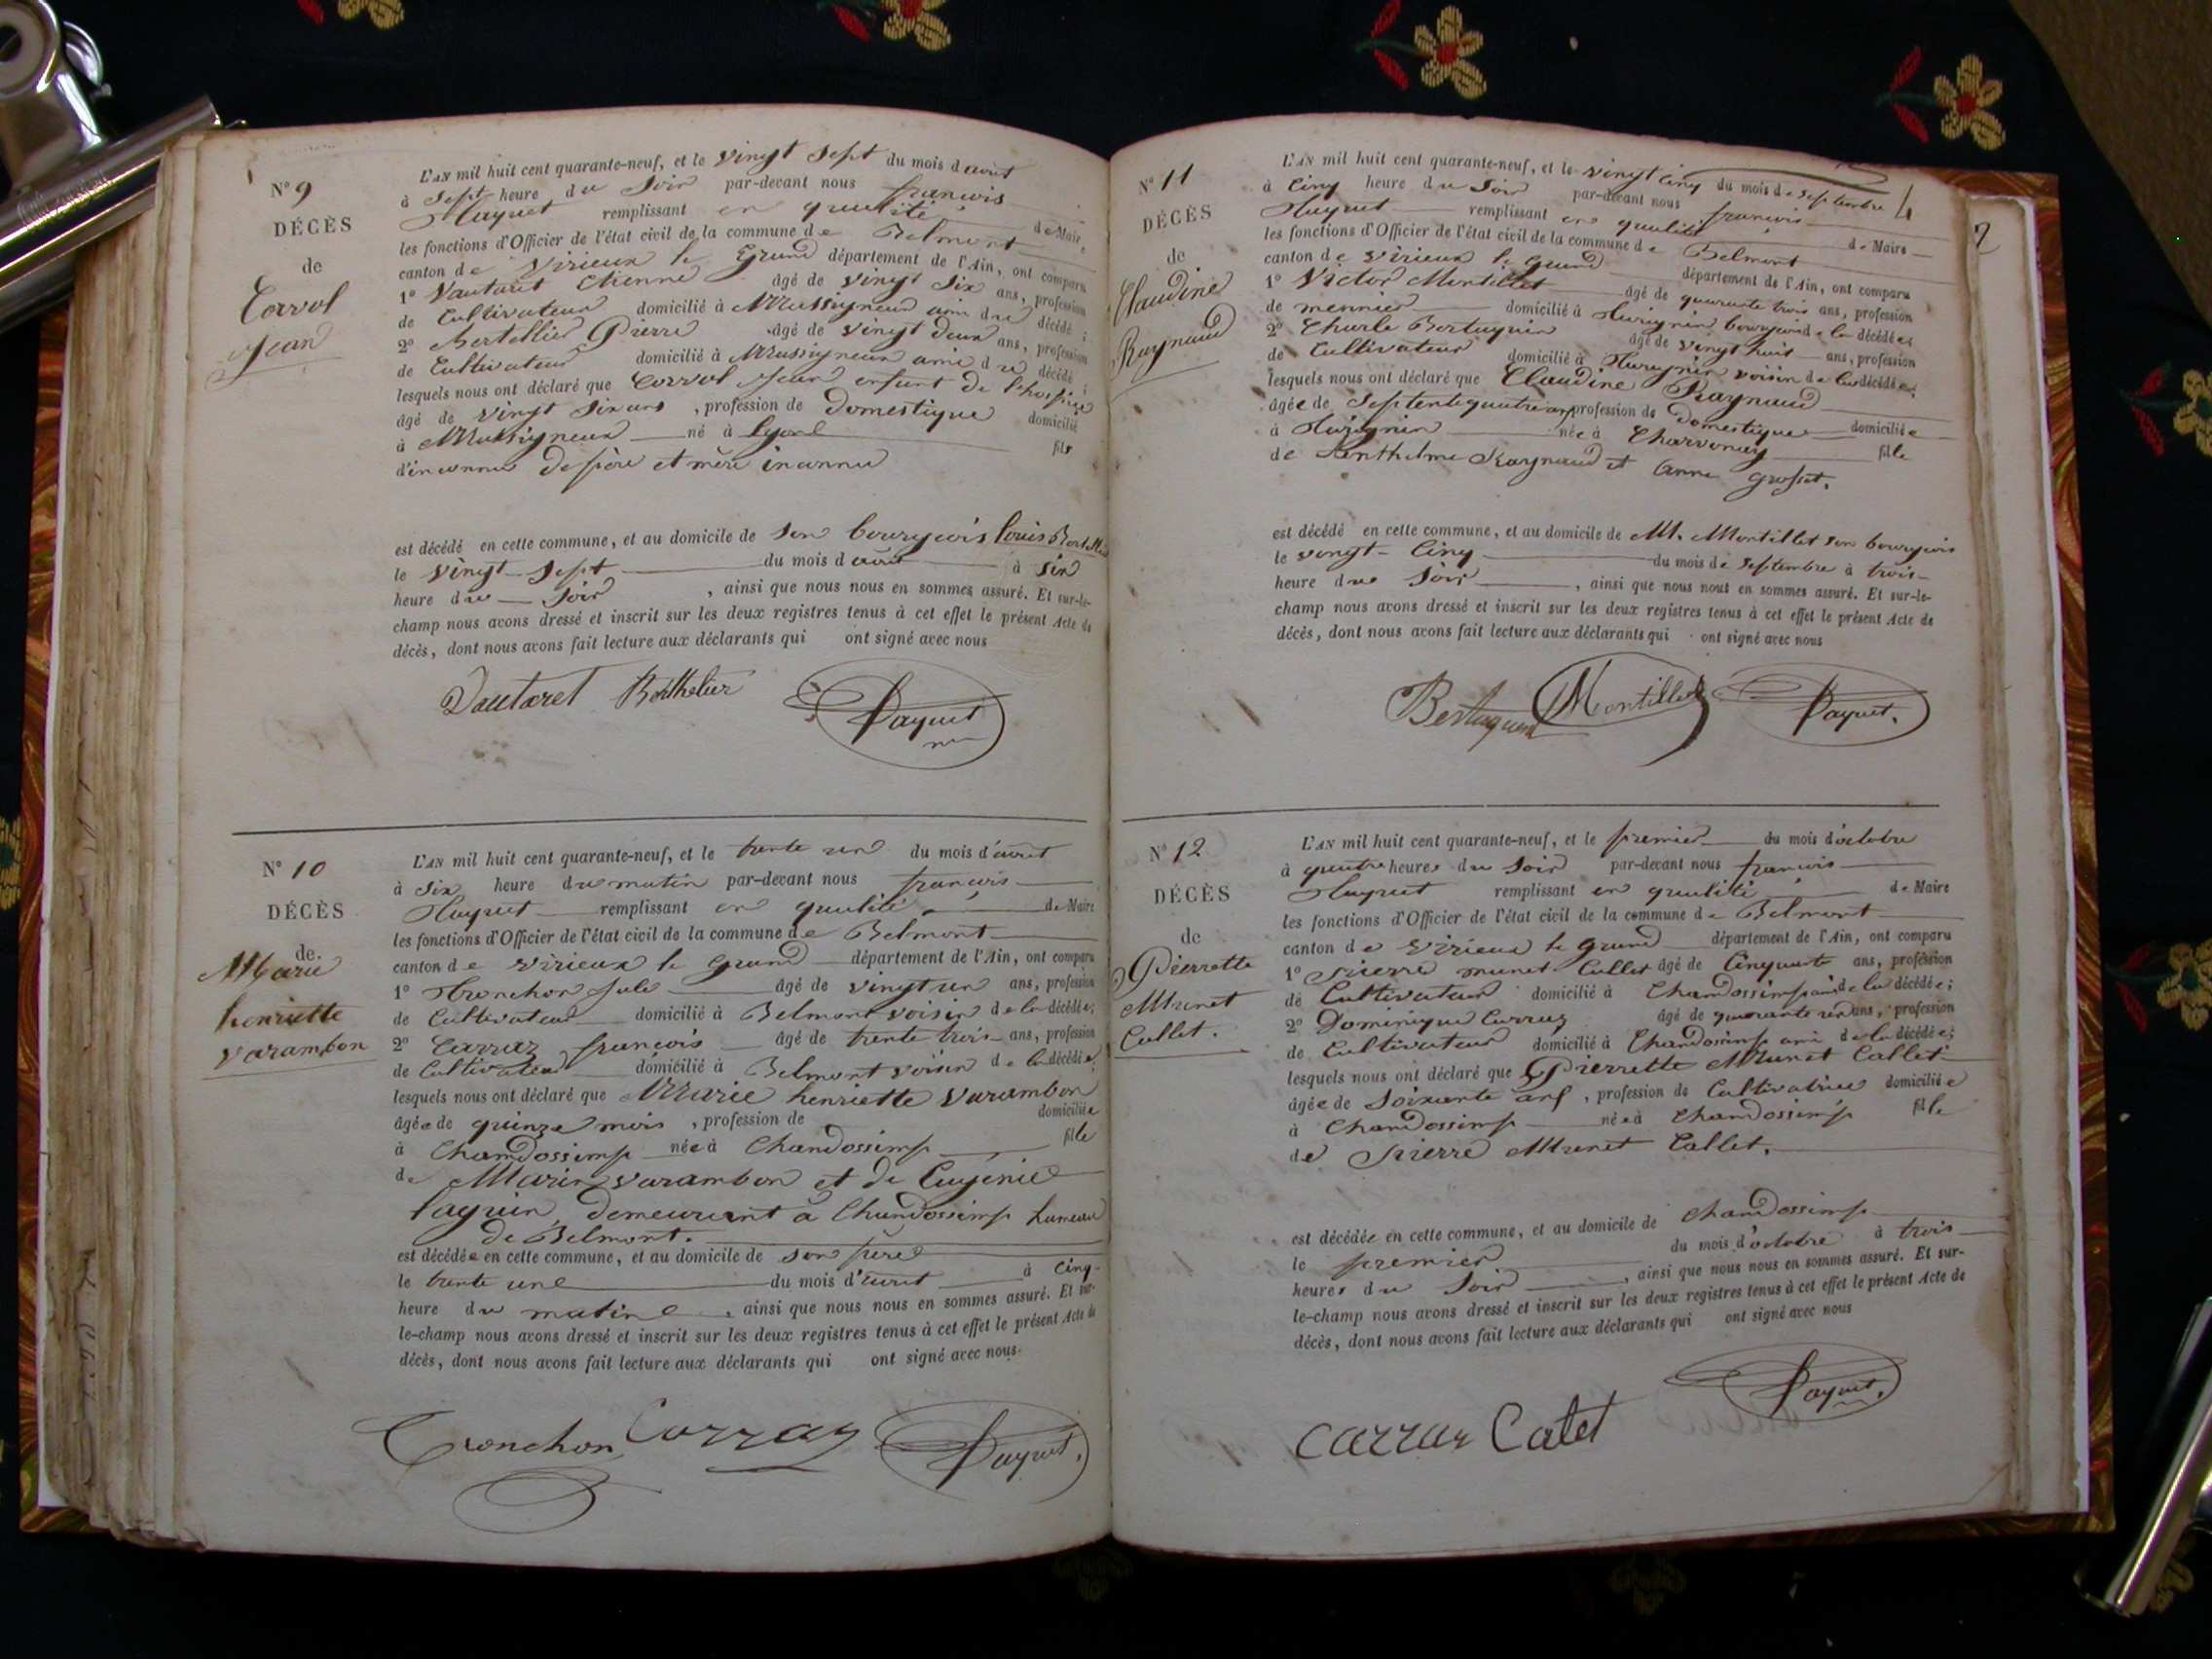 N° 9
DÉCÈS
de
Corvol
Jean
L'AN mil huit cent quarante-neuf, et le vingt sept du mois d'aout
à sept heure du soir par-devant nous francois
Huquet remplissant en qualité de Maire
les fonctions d'Officier de l'état civil de la commune de Belmont
canton de Virieux le Grand département de l'Ain, ont comparu
1° Vautaret Etienne âgé de vingt six ans, profession
de Cultivateur domicilié à Massigneux ami du décédé;
2° Bertellier Pierre âgé de vingt deux ans, profession
de Cultivateur domicilié à Massigneux ami du décédé;
lesquels nous ont déclaré que Corvol Jean enfant de l'hospice
âgé de vingt six ans, profession de Domestique domicilié
à Massigneux né à Lyon fils
d'inconnu de père et mère inconnu
est décédé en cette commune, et au domicile de son bourgeois Louis
le vingt-sept du mois d'aout à six
heure du soir, ainsi que nous nous en sommes assuré. Et sur-le-
champ nous avons dressé et inscrit sur les deux registres tenus à cet effet le présent Acte de
décès, dont nous avons fait lecture aux déclarants qui ont signé avec nous
Vautaret Berthelier Payuet
N° 10
DÉCÈS
de
Marie
henriette
Varambon
L'AN mil huit cent quarante-neuf, et le trente un du mois d'aout
à six heure du matin par-devant nous francois
Huquet remplissant en qualité de Maire
les fonctions d'Officier de l'état civil de la commune de Belmont
canton de Virieux le Grand département de l'Ain, ont comparu
1° Tronchon Jule âgé de vingt un ans, profession
de Cultivateur domicilié à Belmont voisin de la décédée;
2° Carraz françois âgé de trente trois ans, profession
de Cultivateur domicilié à Belmont voisin de la décédée;
lesquels nous ont déclaré que Marie henriette Varambon
âgée de quinze mois, profession de domiciliée
à Chandossimp née à Chandossimp fille
de Marin Varambon et de Eugénie
demeurant à Chandossimp hameau
de Belmont.
est décédée en cette commune, et au domicile de son père
le trente une du mois d'aout à cinq
heure du matin, ainsi que nous nous en sommes assuré. Et sur-
le-champ nous avons dressé et inscrit sur les deux registres tenus à cet effet le présent Acte de
décès, dont nous avons fait lecture aux déclarants qui ont signé avec nous.
Tronchon Carraz Payuet.
N° 11
DÉCÈS
de
Claudine
Raynaud
L'AN mil huit cent quarante-neuf, et le vingt cinq du mois de septembre
à cinq heure du soir par-devant nous francois
Huquet remplissant en qualité de Maire
les fonctions d'Officier de l'état civil de la commune de Belmont
canton de Virieux le Grand département de l'Ain, ont comparu
1° Victor Montillet âgé de quarante trois ans, profession
de meunier domicilié à bourgeois de la décédée;
2° Charle Bertaquin âgé de vingt huit ans, profession
de Cultivateur domicilié à voisin de la décédée;
lesquels nous ont déclaré que Claudine Raynaud
âgée de septente quatre ans, profession de Domestique domiciliée
à née à Charvonay fille
de Anthelme Raynaud et Anne grosset.
est décédé en cette commune, et au domicile de M. Montillet son bourgeois
le vingt-cinq du mois de septembre à trois
heure du soir, ainsi que nous nous en sommes assuré. Et sur-le-
champ nous avons dressé et inscrit sur les deux registres tenus à cet effet le présent Acte de
décès, dont nous avons fait lecture aux déclarants qui ont signé avec nous
Bertaquin Montillet Payuet.
N° 12
DÉCÈS
de
Pierrette
Munet
Callet.
L'AN mil huit cent quarante-neuf, et le premier du mois d'octobre
à quatre heures du soir par-devant nous francois
Huquet remplissant en qualité de Maire
les fonctions d'Officier de l'état civil de la commune de Belmont
canton de Virieux le Grand département de l'Ain, ont comparu
1° pierre munet Callet âgé de Cinquante ans, profession
de Cultivateur domicilié à Chandossimp ami de la décédée;
2° Dominique Carraz âgé de quarante un ans, profession
de Cultivateur domicilié à Chandossimp ami de la décédée;
lesquels nous ont déclaré que Pierrette Munet Callet
âgée de soixante ans, profession de Cultivatrice domiciliée
à Chandossimp née à Chandossimp fille
de pierre Munet Callet.
est décédée en cette commune, et au domicile de Chandossimp
le premier du mois d'octobre à trois
heures du soir, ainsi que nous nous en sommes assuré. Et sur-
le-champ nous avons dressé et inscrit sur les deux registres tenus à cet effet le présent Acte de
décès, dont nous avons fait lecture aux déclarants qui ont signé avec nous
Payuet.
Carraz Calet